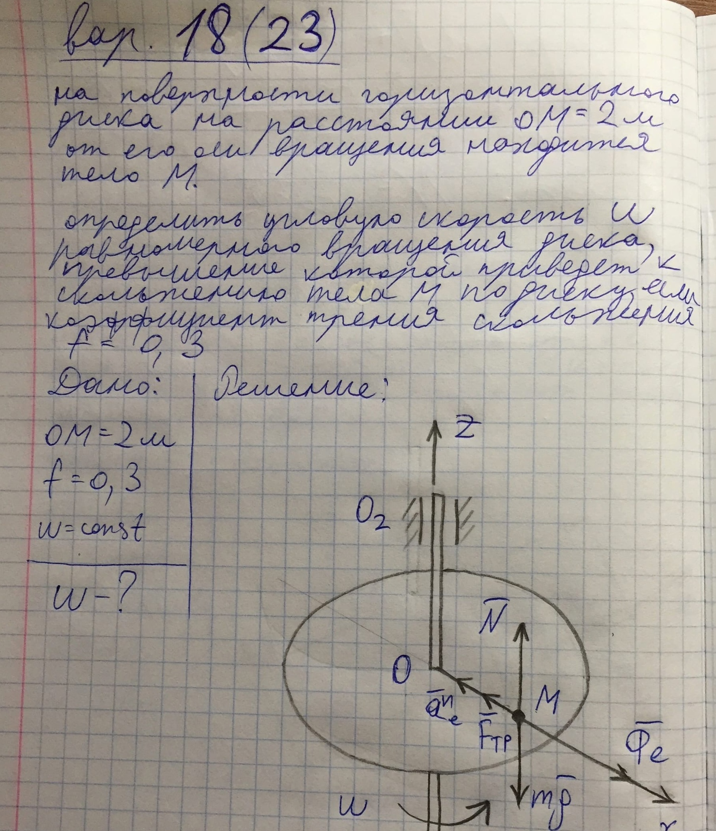 вар. 18(23)
на поверхности горизонтального
диска на расстоянии OM=2м
от его оси вращения находится
тело M.
определить угловую скорость ω
равномерного вращения диска,
превышение которой приведет к
скольжению тела M по диску, если
коэффициент трения скольжения
f = 0,3
Дано:
Решение:
OM=2м
f=0,3
ω=const
ω-?
z
O₂
N̅
O
M
a̅ₑⁿ
F̅тр
Φ̅e
ω
mp̅
x